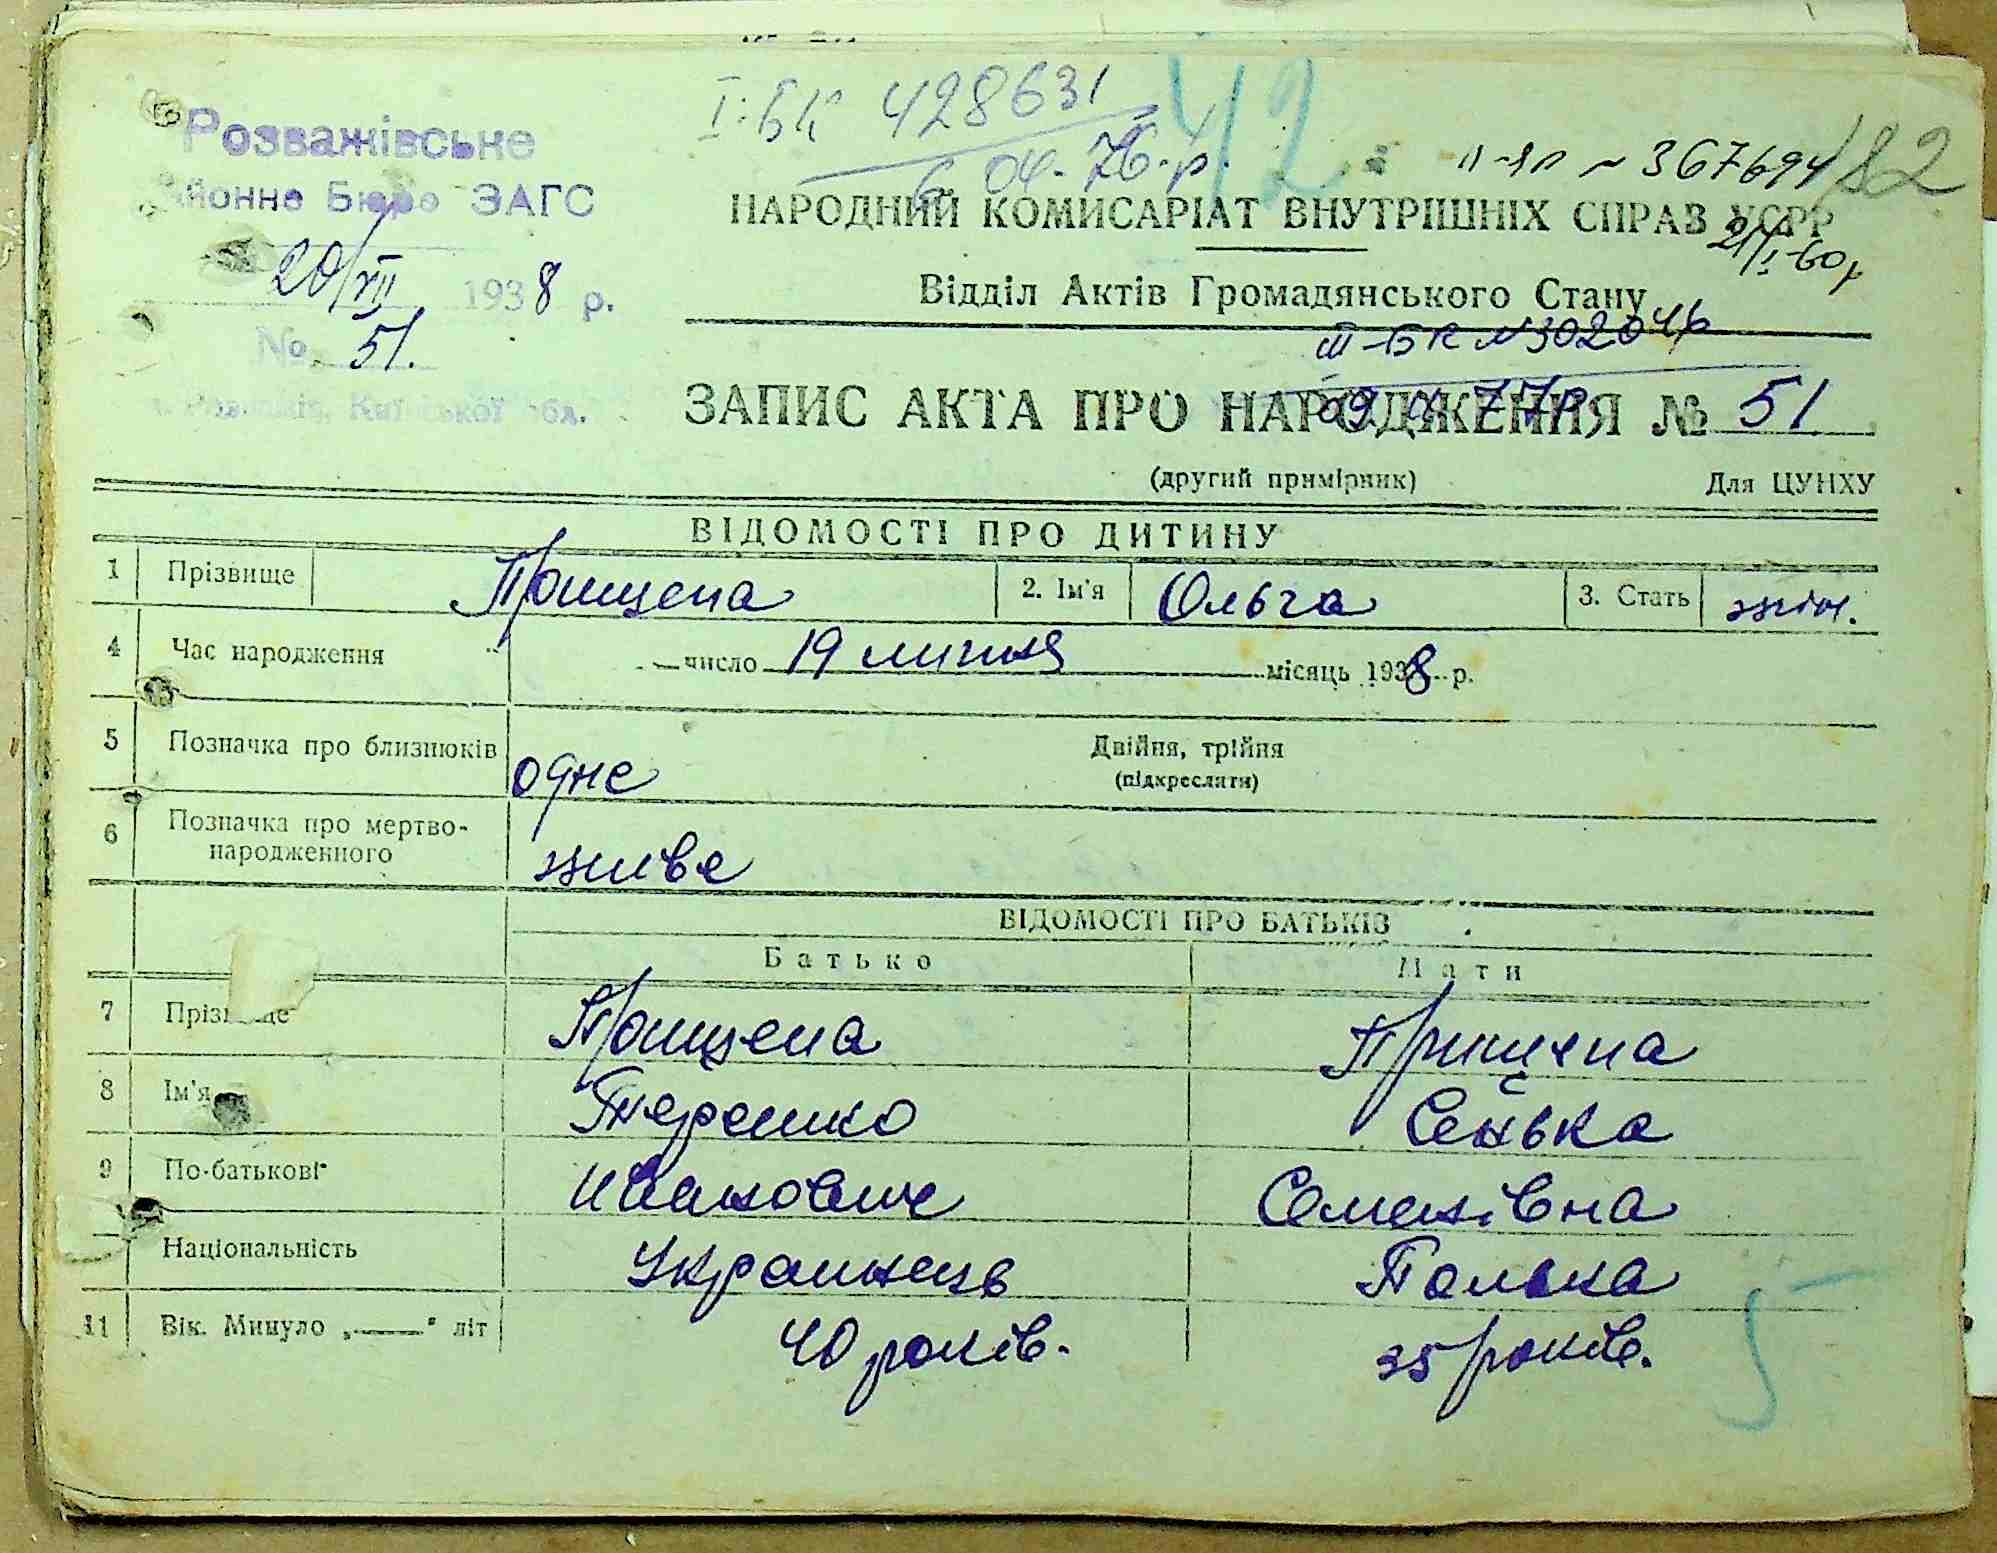 І-БК 428631
6 04.76.р.
42
182
ІІ-ЯП № 367694
21/І-60р
Розважівське
йонне Бюро ЗАГС
20/VII 1938 р.
№ 51.
Київської обл.
НАРОДНИЙ КОМИСАРІАТ ВНУТРІШНІХ СПРАВ УСРР
Відділ Актів Громадянського Стану
ІІІ-БК №302046
ЗАПИС АКТА ПРО НАРОДЖЕННЯ № 51
(другий примірник)
Для ЦУНХУ
ВІДОМОСТІ ПРО ДИТИНУ
1 Прізвище Прищепа 2. Ім'я Ольга 3. Стать жін.
4 Час народження число 19 липня місяць 1938 р.
5 Позначка про близнюків одне Двійня, трійня
(підкреслити)
6 Позначка про мертво-
народженного живе
ВІДОМОСТІ ПРО БАТЬКІВ
Батько Мати
7 Прізвище Прищепа Прищепа
8 Ім'я Терешко Сенька
9 По-батькові Иванович Семенівна
Національність Українець Полька
11 Вік. Минуло „——" літ 40 років. 35 років.
5